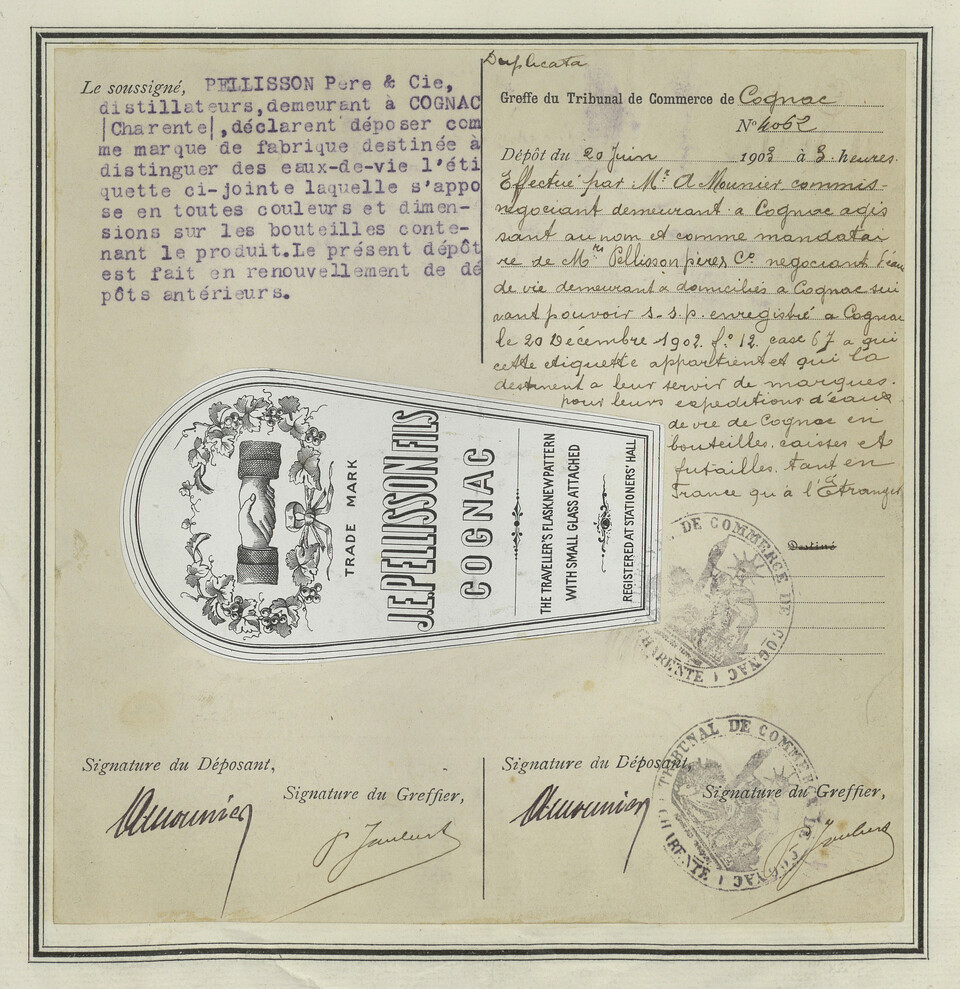 Le soussigné, PELLISSON Pere & Cie,
distillateurs, demeurant à COGNAC
|Charente|, déclarent déposer com
me marque de fabrique destinée à
distinguer des eaux-de-vie l'éti
quette ci-jointe laquelle s'appo
se en toutes couleurs et dimen-
sions sur les bouteilles conte-
nant le produit. Le présent dépôt
est fait en renouvellement de dé
pôts antérieurs.
Duplicata
Greffe du Tribunal de Commerce de Cognac
N° 4062
Dépôt du 20 Juin 1903 à 3 heures.
Effectué par Mr A Mounier commis-
négociant demeurant a Cognac agis
sant au nom et comme mandatai
re de Mrs Pellisson pères Co negociant d'eau
de vie demeurant a domiciliés a Cognac sui
vant pouvoir s.s.p. enregistré a Cognac
le 20 Décembre 1902 fo 12 case 67 a qui
cette etiquette appartient et qui la
destinent a leur servir de marques.
pour leurs expeditions d'eaux
de vie de Cognac en
bouteilles, caisses et
futailles. tant en
France qu'à l'Étranger
Destiné
TRADE MARK
J.E. PELLISSON FILS
COGNAC
THE TRAVELER'S FLASK NEW PATTERN
WITH SMALL GLASS ATTACHED
REGISTERED AT STATIONERS' HALL
DE COMMERCE DE COGNAC
CHARENTE
Signature du Déposant,
Signature du Greffier,
Amounier
P Joubert
Signature du Déposant,
Signature du Greffier,
Amounier
P Joubert
TRIBUNAL DE COMMERCE DE COGNAC
CHARENTE